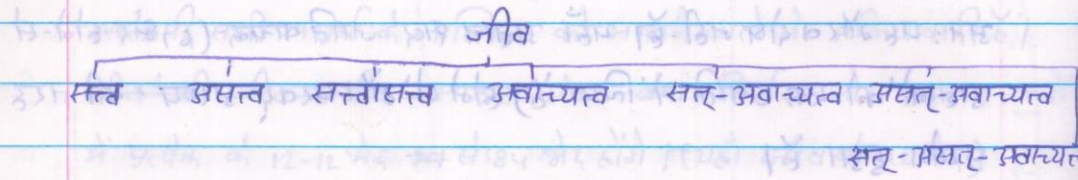 जीव
सत्त्व असत्त्व सत्त्वासत्त्व अवाच्यत्व सत्-अवाच्यत्व असत्-अवाच्यत्व
सत्-असत्-अवाच्यत